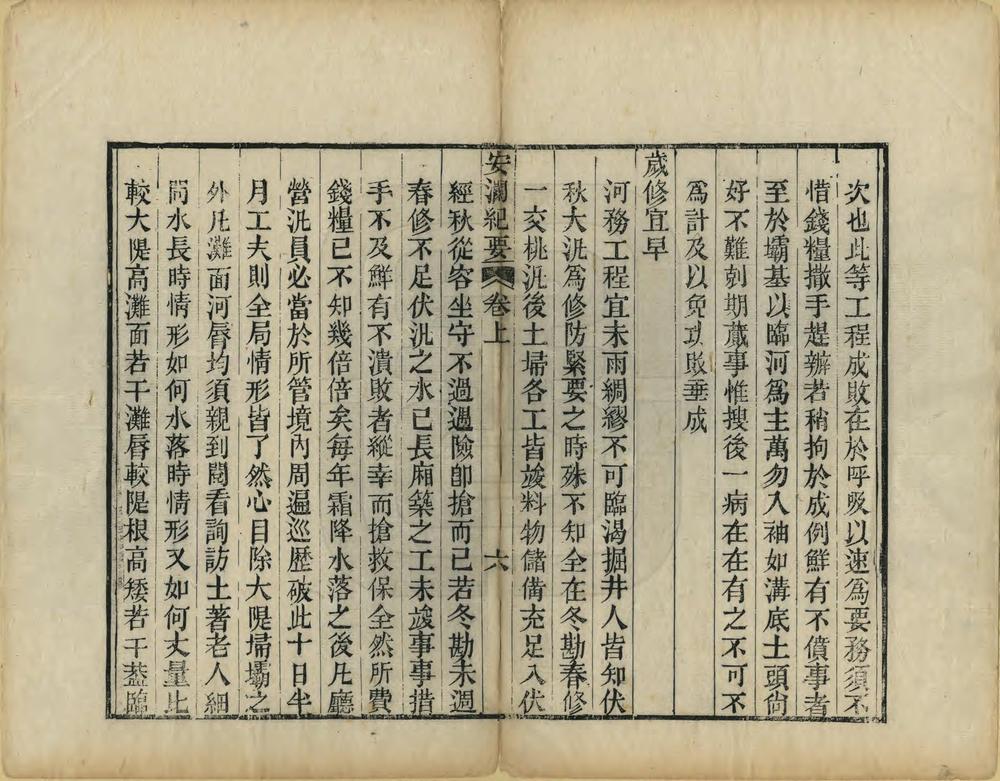 次也此等工程成敗在於呼吸以速爲要務須不
惜錢糧撒手趕辦若稍拘於成例鮮有不僨事者
至於壩基以臨河爲主萬勿入袖如溝底土頭尙
好不難剋期蕆事惟搜後一病在在有之不可不
爲計及以免功敗垂成
歲修宜早
河務工程宜未雨綢繆不可臨渴掘井人皆知伏
秋大汛爲修防緊要之時殊不知全在冬勘春修
一交桃汛後土埽各工皆竣料物儲備充足入伏
安瀾紀要 卷上 六
經秋從容坐守不過遇險卽搶而已若冬勘未週
春修不足伏汛之水已長廂築之工未竣事事措
手不及鮮有不潰敗者縱幸而搶救保全然所費
錢糧已不知幾倍倍矣每年霜降水落之後凡廳
營汛員必當於所管境內周遍巡歷破此十日半
月工夫則全局情形皆了然心目除大隄埽壩之
外凡灘面河脣均須親到閱看詢訪土著老人細
問水長時情形如何水落時情形又如何丈量比
較大隄高灘面若干灘脣較隄根高矮若干葢臨